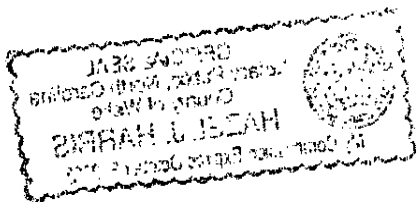 OFFICIAL SEAL
Notary Public, North Carolina
County of Wake
HAZEL J. HARRIS
My Commission Expires October